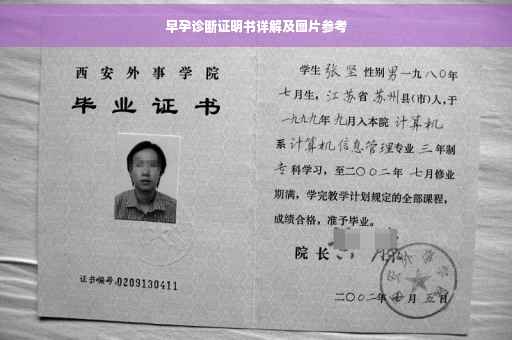 早孕诊断证明书详解及图片参考
西安外事学院
毕业证书
证书编号:0209130411
学生 张坚 性别 男 一九八〇年
七月生，江苏省 苏州县(市)人，于
一九九九年 九月入本院 计算机
系 计算机信息管理专业 三 年制
专科学习，至二〇〇二年 七月修业
期满，学完教学计划规定的全部课程，
成绩合格，准予毕业。
院长
二〇〇二年 月 五日